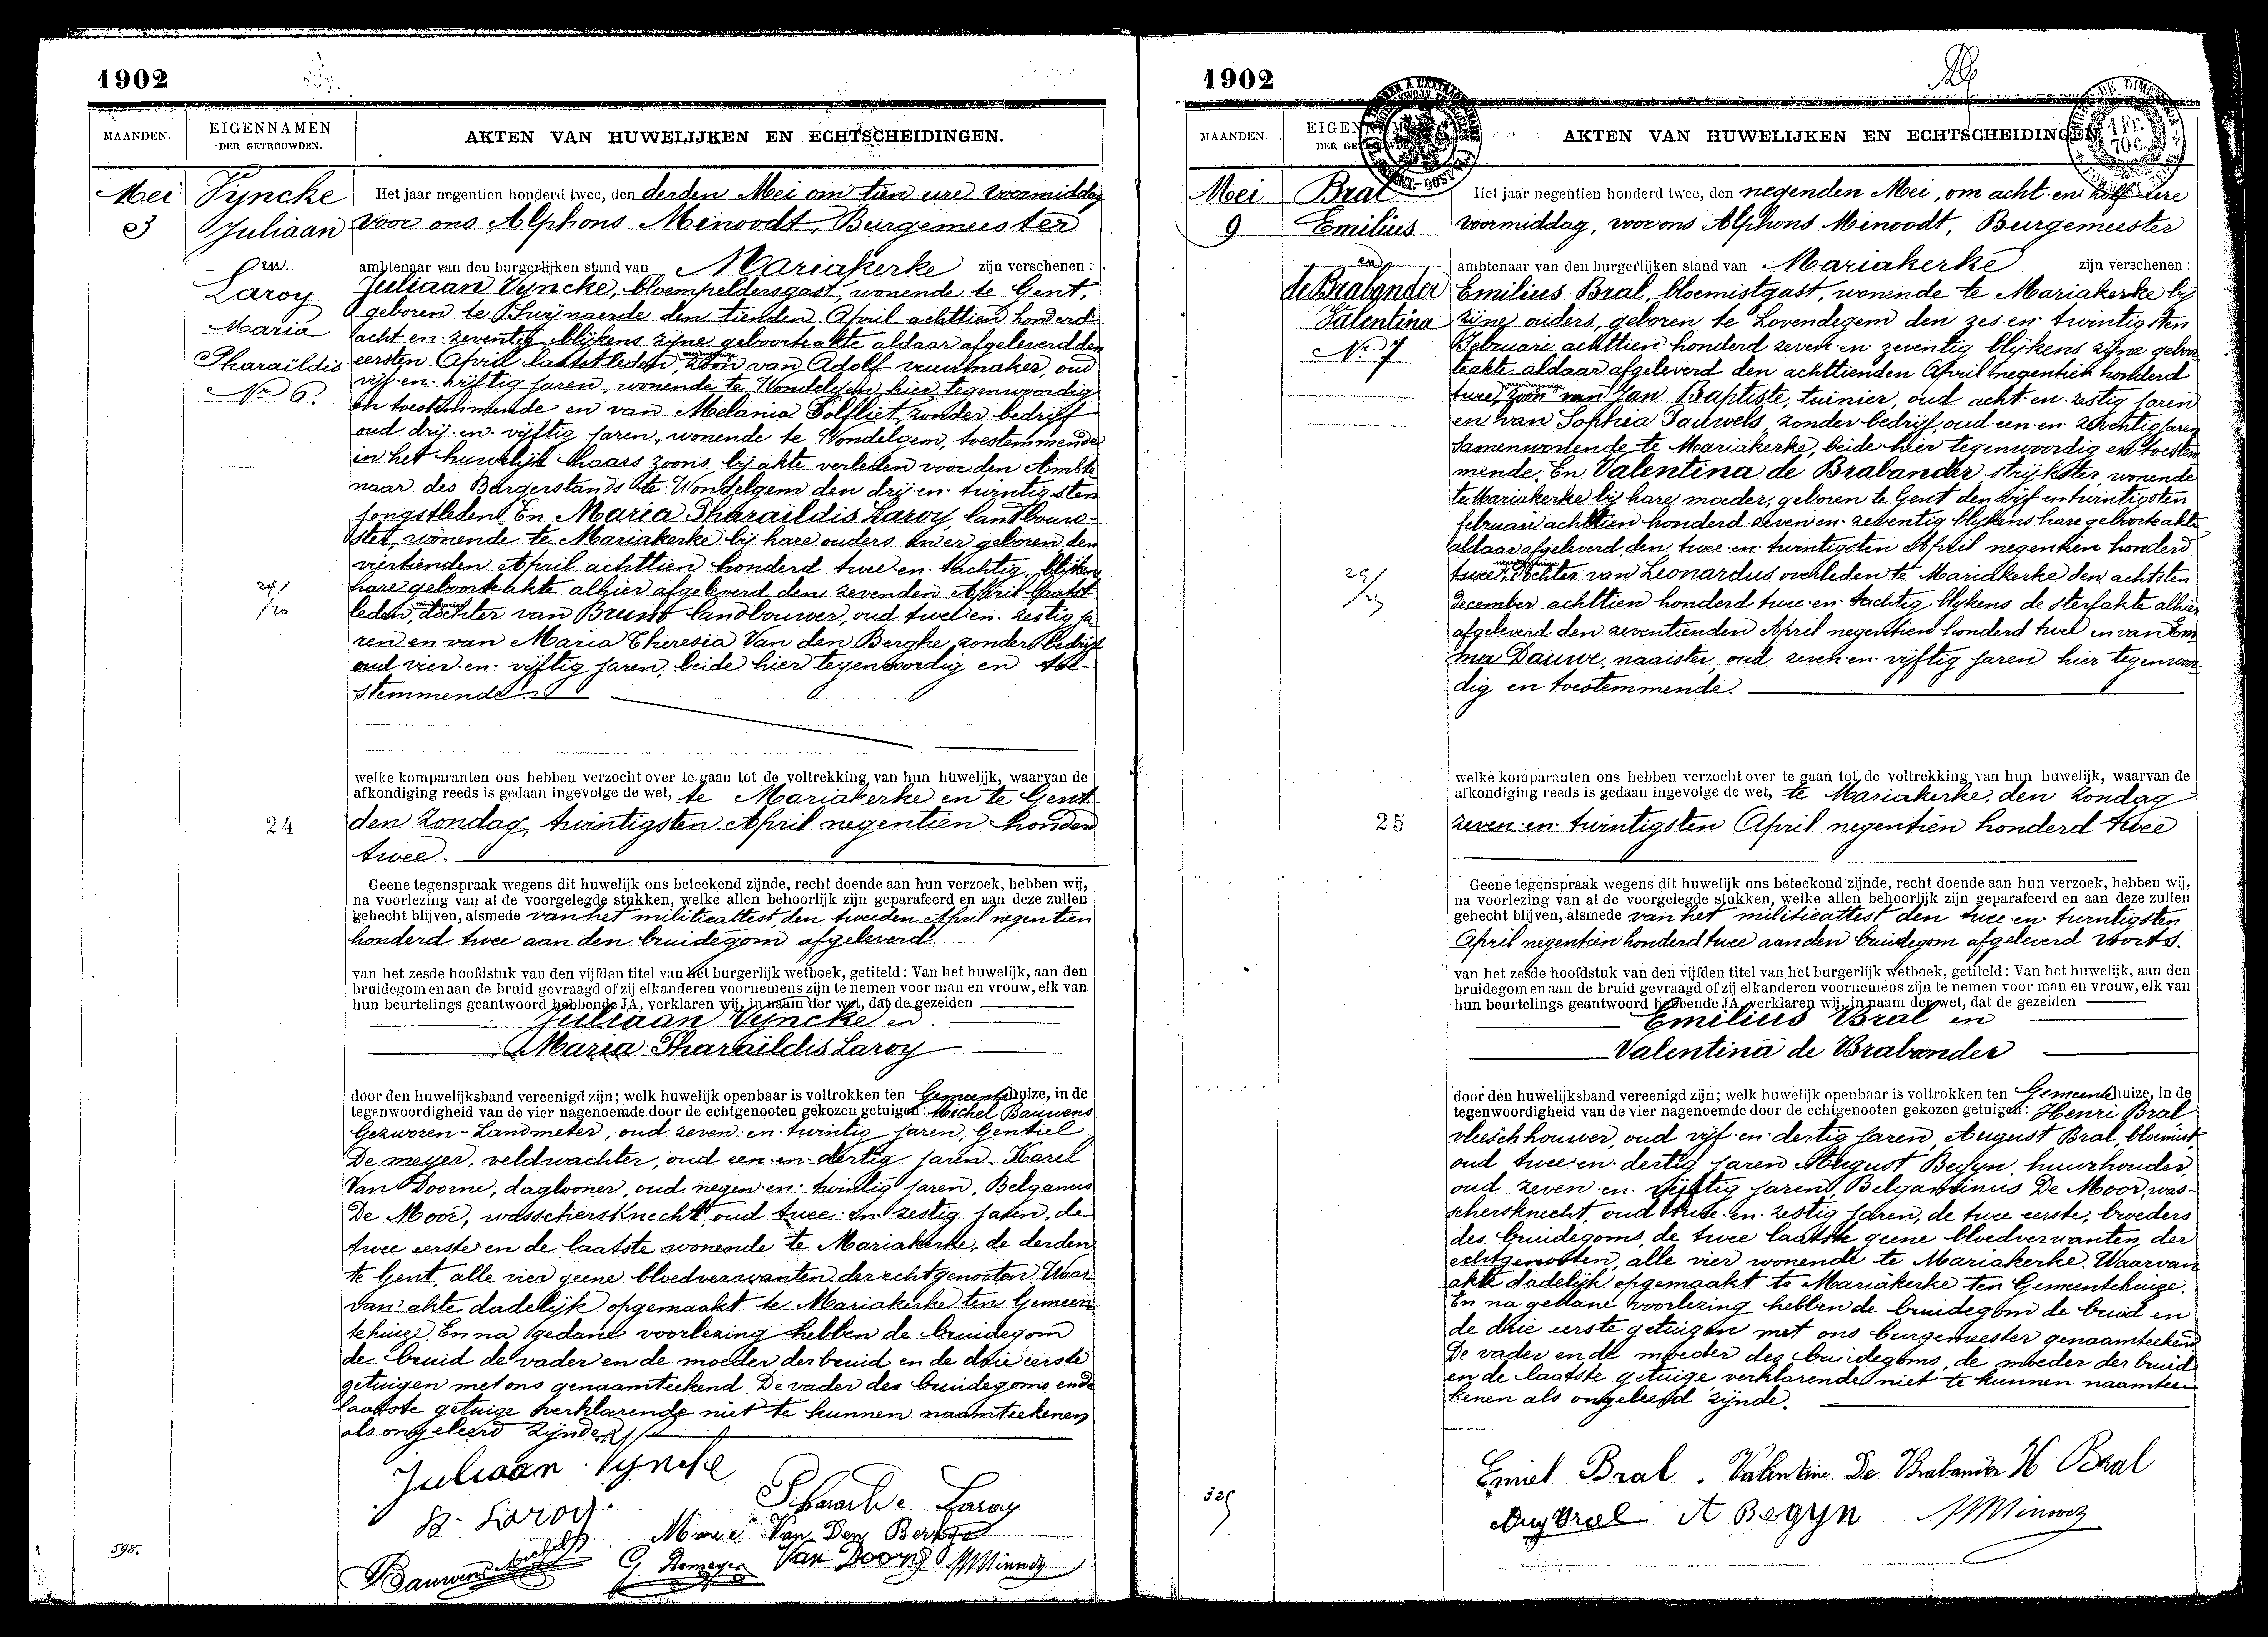 1902
MAANDEN.
EIGENNAMEN
DER GETROUWDEN.
AKTEN VAN HUWELIJKEN EN ECHTSCHEIDINGEN.
Mei
3
Vyncke
Juliaan
en
Laroy
Maria
Pharaïldis
No 6.
24
598.
Het jaar negentien honderd twee, den derden Mei om tien ure voormiddag
voor ons Alphons Minoodt, Burgemeester
ambtenaar van den burgerlijken stand van Mariakerke zijn verschenen:
Juliaan Vyncke, wonende te Gent,
geboren te Swijnaerde den tienden April achttien honderd
acht en zeventig blijkens zijne geboorteakte aldaar afgeleverd den
eersten April laatstleden, zoon van Adolf vuurmaker, oud
vijf en vijftig jaren, wonende te Wondelgem hier tegenwoordig
en toestemmende en van Melania zonder bedrijf
oud drij en vijftig jaren, wonende te Wondelgem, toestemmende
in het huwelijk haars zoons bij akte verleden voor den Ambte
naar des Burgerstands te Wondelgem den drij en twintigsten
jongstleden. En Maria Pharaïldis Laroy, landbouw-
ster, wonende te Mariakerke bij hare ouders en er geboren den
viertienden April achttien honderd twee en tachtig blijkens
hare geboorteakte alhier afgeleverd den zevenden April laatst
leden, dochter van Bruno landbouwer, oud twee en zestig ja
ren en van Maria Theresia Van den Berghe zonder bedrijf
oud vier en vijftig jaren, beide hier tegenwoordig en toe-
stemmende
welke komparanten ons hebben verzocht over te gaan tot de voltrekking van hun huwelijk, waarvan de
afkondiging reeds is gedaan ingevolge de wet, te Mariakerke en te Gent
den Zondag, twintigsten April negentien honderd
twee.
Geene tegenspraak wegens dit huwelijk ons beteekend zijnde, recht doende aan hun verzoek, hebben wij,
na voorlezing van al de voorgelegde stukken, welke allen behoorlijk zijn geparafeerd en aan deze zullen
gehecht blijven, alsmede van het militieattest den tweeden April negentien
honderd twee aan den bruidegom afgeleverd
van het zesde hoofdstuk van den vijfden titel van het burgerlijk wetboek, getiteld: Van het huwelijk, aan den
bruidegom en aan de bruid gevraagd of zij elkanderen voornemens zijn te nemen voor man en vrouw, elk van
hun beurtelings geantwoord hebbende JA, verklaren wij, in naam der wet, dat de gezeiden
Juliaan Vyncke en
Maria Pharaïldis Laroy
door den huwelijksband vereenigd zijn; welk huwelijk openbaar is voltrokken ten Gemeentehuize, in de
tegenwoordigheid van de vier nagenoemde door de echtgenooten gekozen getuigen: Michel Bauwens
Gezworen-Landmeter, oud zeven en twintig jaren, Gentiel
De meyer, veldwachter, oud een en dertig jaren Karel
Van Doorne, dagloner, oud negen en twintig jaren, Belganus
De Moor, wasschersknecht oud twee en zestig jaren, de
twee eerste en de laatste wonende te Mariakerke, de derden
te Gent, alle vier geene bloedverwanten der echtgenooten. Waar
van akte dadelijk opgemaakt te Mariakerke ten Gemeen
tehuize. En na gedane voorlezing hebben de bruidegom
de bruid de vader en de moeder der bruid en de drie eerste
getuigen met ons genaamteekend. De vader des bruidegoms en de
laatste getuige verklarende niet te kunnen naamteekenen
als ongeleerd zijnde
Juliaan Vyncke
B. Laroy
Laroy
Marie Van Den Berghe
Bauwens Michel
G. Demeyer
Van Doorne
AMinoodt
1902
MAANDEN.
AKTEN VAN HUWELIJKEN EN ECHTSCHEIDINGEN
Mei
9
Bral
Emilius
en
de Brabander
Valentina
No 7
25
325
Het jaar negentien honderd twee, den negenden Mei, om acht en half ure
voormiddag, voor ons Alphons Minoodt, Burgemeester
ambtenaar van den burgerlijken stand van Mariakerke zijn verschenen:
Emilius Bral, bloemistgast, wonende te Mariakerke bij
zijne ouders, geboren te Lovendegem den zes en twintigsten
Februari achttien honderd zeven en zeventig blijkens zijne geboor
teakte aldaar afgeleverd den achttienden April negentien honderd
twee, zoon van Jan Baptiste, tuinier, oud acht en zestig jaren
en van Sophia Pauwels, zonder bedrijf, oud een en zeventig jaren
samenwonende te Mariakerke, beide hier tegenwoordig en toestem
mende. En Valentina de Brabander strijkster, wonende
te Mariakerke bij hare moeder, geboren te Gent den vijf en twintigsten
februari achttien honderd zeven en zeventig blijkens hare geboorteakte
aldaar afgeleverd den twee en twintigsten April negentien honderd
twee, dochter van Leonardus overleden te Mariakerke den achtsten
december achttien honderd twee en tachtig blijkens de sterfakte alhier
afgeleverd den zeventienden April negentien honderd twee en van Em
ma Dauwe, naaister, oud zeven en vijftig jaren hier tegenwoor
dig en toestemmende.
welke komparanten ons hebben verzocht over te gaan tot de voltrekking van hun huwelijk, waarvan de
afkondiging reeds is gedaan ingevolge de wet, te Mariakerke, den Zondag
zeven en twintigsten April negentien honderd twee
Geene tegenspraak wegens dit huwelijk ons beteekend zijnde, recht doende aan hun verzoek, hebben wij,
na voorlezing van al de voorgelegde stukken, welke allen behoorlijk zijn geparafeerd en aan deze zullen
gehecht blijven, alsmede van het militieattest den twee en twintigsten
April negentien honderd twee aan den bruidegom afgeleverd voorts.
van het zesde hoofdstuk van den vijfden titel van het burgerlijk wetboek, getiteld: Van het huwelijk, aan den
bruidegom en aan de bruid gevraagd of zij elkanderen voornemens zijn te nemen voor man en vrouw, elk van
hun beurtelings geantwoord hebbende JA, verklaren wij, in naam der wet, dat de gezeiden
Emilius Bral en
Valentina de Brabander
door den huwelijksband vereenigd zijn; welk huwelijk openbaar is voltrokken ten Gemeentehuize, in de
tegenwoordigheid van de vier nagenoemde door de echtgenooten gekozen getuigen: Henri Bral
vleeschhouwer, oud vijf en dertig jaren, August Bral, bloemist
oud twee en dertig jaren August Begyn, huurhouder,
oud zeven en vijftig jaren, De Moor, was-
schersknecht, oud twee en zestig jaren, de twee eerste, broeders
des bruidegoms, de twee laatste geene bloedverwanten der
echtgenooten, alle vier wonende te Mariakerke. Waarvan
akte dadelijk opgemaakt te Mariakerke ten Gementehuize.
En na gedane voorlezing hebben de bruidegom de bruid en
de drie eerste getuigen met ons burgemeester genaamteekend
De vader en de moeder des bruidegoms, de moeder der bruid
en de laatste getuige verklarende niet te kunnen naamtee
kenen als ongeleerd zijnde.
Emiel Bral. Valentine De Brabander H Bral
Aug Bral A Begyn AMinoodt